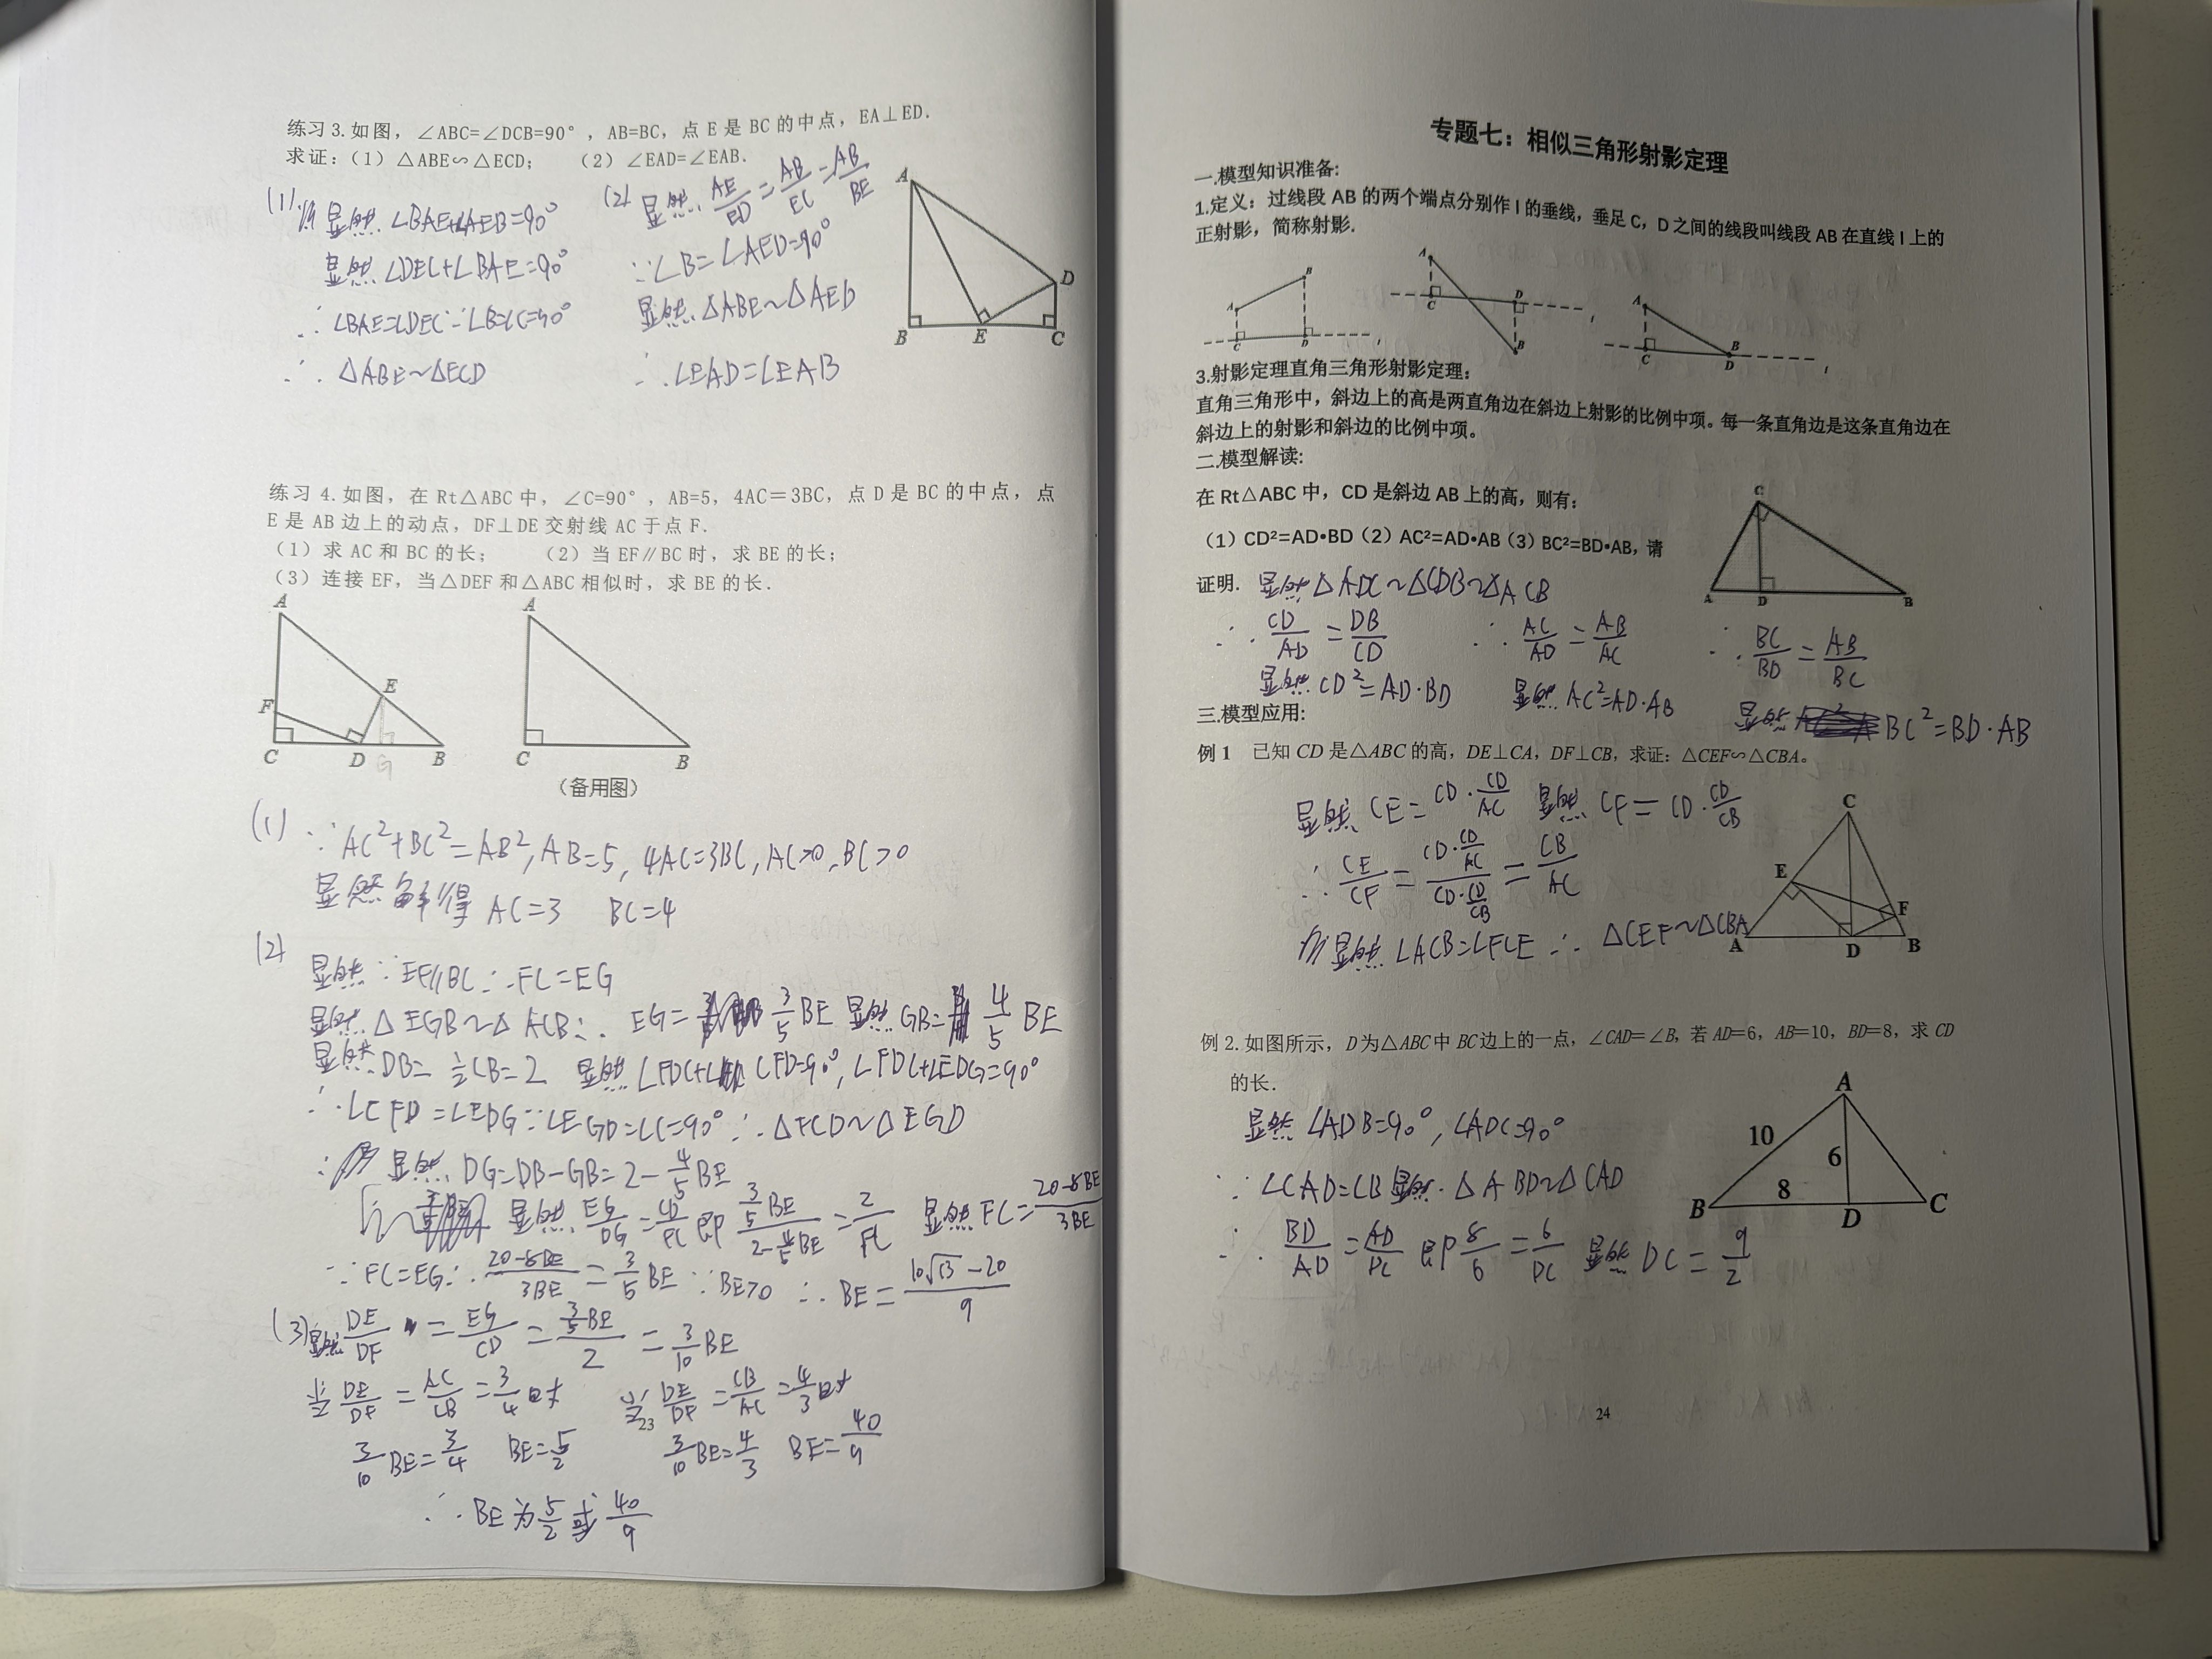 练习 3.如图，∠ABC=∠DCB=90°，AB=BC，点 E 是 BC 的中点，EA⊥ED.
求证：（1）△ABE∽△ECD； （2）∠EAD=∠EAB.
(1) 显然 ∠BAE+∠AEB=90°
显然 ∠DEC+∠BAE=90°
∴ ∠BAE=∠DEC ∵∠B=∠C=90°
∴ △ABE~△ECD
(2) 显然 AE/ED=AB/EC=AB/BE
∵∠B=∠AED=90°
显然 △ABE~△AED
∴ ∠EAD=∠EAB
A
D
B
E
C
练习 4.如图，在 Rt△ABC 中，∠C=90°，AB=5，4AC＝3BC，点 D 是 BC 的中点，点
E 是 AB 边上的动点，DF⊥DE 交射线 AC 于点 F.
（1）求 AC 和 BC 的长； （2）当 EF∥BC 时，求 BE 的长；
（3）连接 EF，当△DEF 和△ABC 相似时，求 BE 的长.
A
E
F
C D G B
A
C B
（备用图）
(1) ∵AC²+BC²=AB²,AB=5,4AC=3BC,AC>0,BC>0
显然解得 AC=3 BC=4
(2)
显然 ∵EF∥BC ∴FC=EG
显然 △EGB~△ACB ∴ EG=3/5 BE 显然 GB=4/5 BE
显然 DB=1/2 CB=2 显然 ∠FDC+∠CFD=90°,∠FDC+∠EDG=90°
∴∠CFD=∠EDG ∵∠EGD=∠C=90° ∴△FCD~△EGD
∴ 显然 DG=DB-GB=2-4/5 BE
显然 EG/DG=CD/FC 即 (3/5 BE)/(2-4/5 BE)=2/FC 显然 FC=(20-8BE)/3BE
∵FC=EG ∴ (20-8BE)/3BE=3/5 BE ∵BE>0 ∴ BE=(10√13-20)/9
(3) 显然 DE/DF=EG/CD=(3/5 BE)/2=3/10 BE
当 DE/DF=AC/CB=3/4时 当 DE/DF=CB/AC=4/3时
3/10 BE=3/4 BE=5/2 3/10 BE=4/3 BE=40/9
∴ BE为5/2或40/9
23
专题七：相似三角形射影定理
一.模型知识准备：
1.定义：过线段 AB 的两个端点分别作 l 的垂线，垂足 C，D 之间的线段叫线段 AB 在直线 l 上的
正射影，简称射影.
A B C D l
A C D B l
A C B D l
3.射影定理直角三角形射影定理：
直角三角形中，斜边上的高是两直角边在斜边上射影的比例中项。每一条直角边是这条直角边在
斜边上的射影和斜边的比例中项。
二.模型解读：
在 Rt△ABC 中，CD 是斜边 AB 上的高，则有：
（1）CD²=AD•BD（2）AC²=AD•AB（3）BC²=BD•AB，请
证明. 显然 △ADC~△CDB~△ACB
C
A D B
∴ CD/AD=DB/CD ∴ AC/AD=AB/AC ∴ BC/BD=AB/BC
显然 CD²=AD·BD 显然 AC²=AD·AB 显然 BC²=BD·AB
三.模型应用：
例 1 已知 CD 是△ABC 的高，DE⊥CA，DF⊥CB，求证：△CEF∽△CBA。
显然 CE=CD·CD/AC 显然 CF=CD·CD/CB
∴ CE/CF=(CD·CD/AC)/(CD·CD/CB)=CB/AC
显然 ∠ACB=∠FCE ∴ △CEF~△CBA
C
E
F
A
D
B
例 2.如图所示，D 为△ABC 中 BC 边上的一点，∠CAD=∠B，若 AD=6，AB=10，BD=8，求 CD
的长.
显然 ∠ADB=90°,∠ADC=90°
∵ ∠CAD=∠B 显然 △ABD~△CAD
∴ BD/AD=AD/DC 即 8/6=6/DC 显然 DC=9/2
A
10
6
8
B
D
C
24